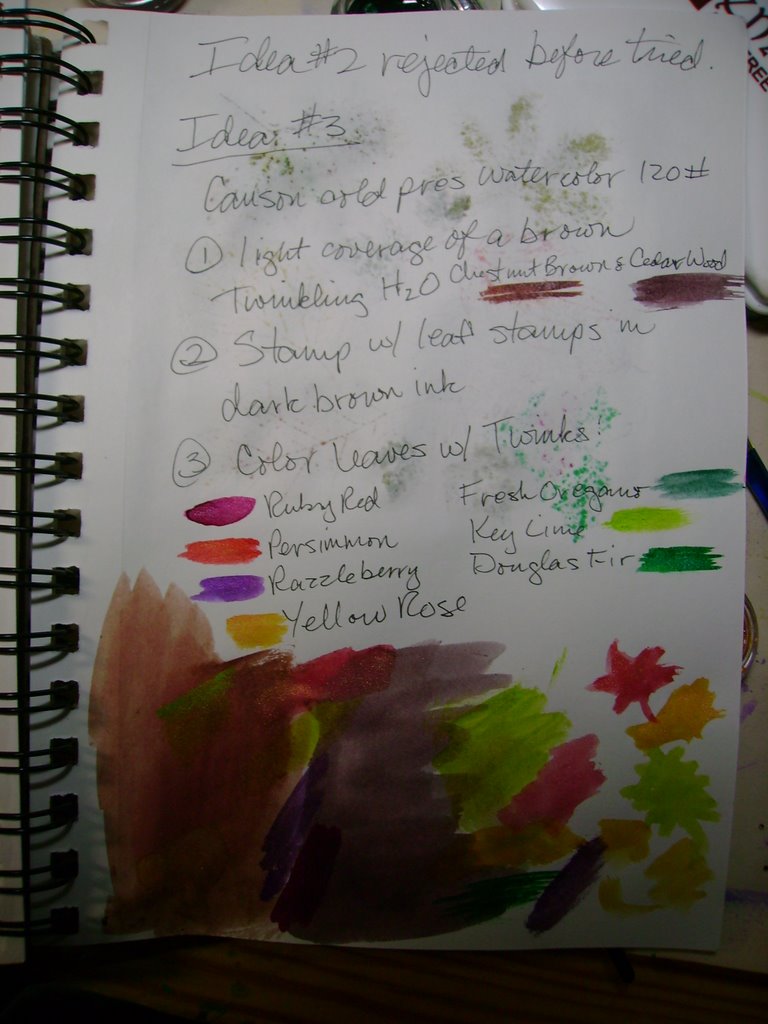 Idea #2 rejected before tried.
Idea #3
Canson cold pres watercolor 120#
① light coverage of a brown
Twinkling H₂O Chestnut Brown & Cedar Wood
② Stamp w/ leaf stamps in
dark brown ink
③ Color leaves w/ Twinks!
Ruby Red Fresh Oregano
Persimmon Key Lime
Razzleberry Douglas Fir
Yellow Rose
FREE